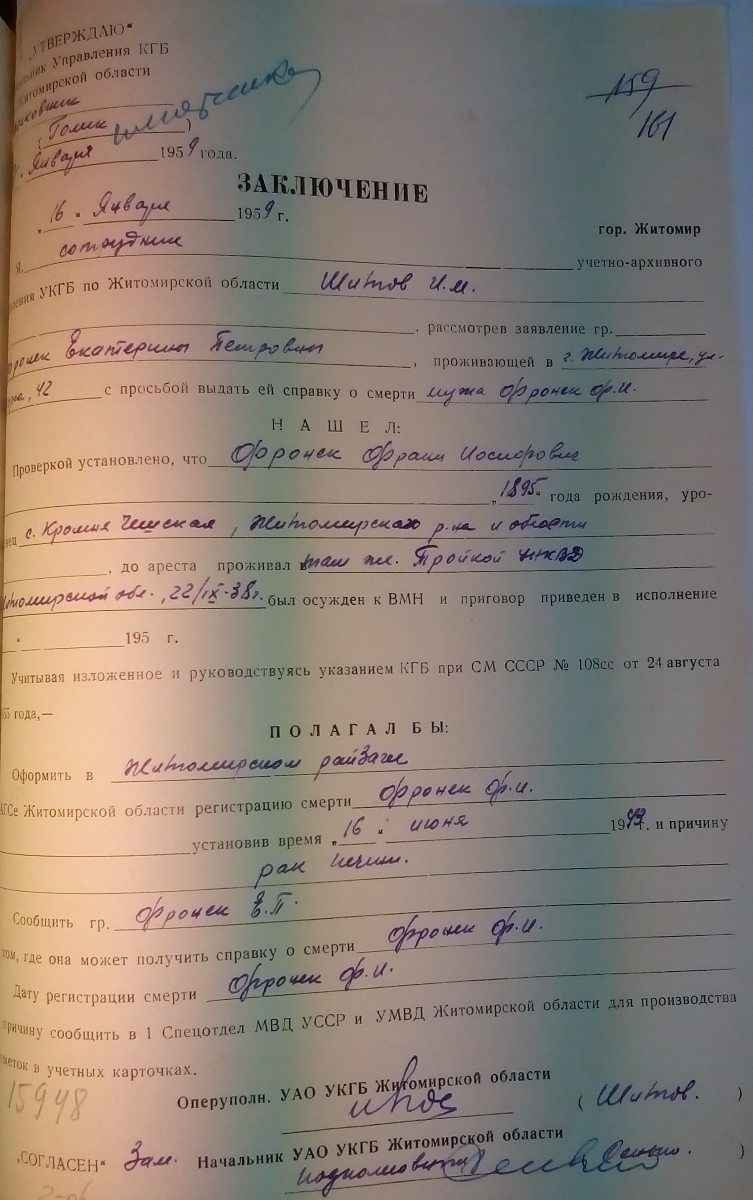 „УТВЕРЖДАЮ“
Управления КГБ
Житомирской области
159
(Голик)
161
Января 1959 года.
ЗАКЛЮЧЕНИЕ
„16“ Января 1959 г.
гор. Житомир
Я, сотрудник учетно-архивного
УКГБ по Житомирской области Шитов И.М.
, рассмотрев заявление гр.
Екатерины Петровны, проживающей в г. Житомире, ул.
, 42 с просьбой выдать ей справку о смерти мужа Фронек Ф.И.
НАШЕЛ:
Проверкой установлено, что Фронек Франц Иосифович
, 1895 года рождения, уро-
с. Крошня Чешская, Житомирского р-на и области
, до ареста проживал там же. Тройкой НКВД
Житомирской обл., 22/IX-38г. был осужден к ВМН и приговор приведен в исполнение
„ 195 г.
Учитывая изложенное и руководствуясь указанием КГБ при СМ СССР № 108сс от 24 августа
года,—
ПОЛАГАЛ БЫ:
Оформить в Житомирском райзагсе
Житомирской области регистрацию смерти Фронек Ф.И.
установив время „16“ июня г. и причину
рак печени.
Сообщить гр. Фронек Е.П.
том, где она может получить справку о смерти Фронек Ф.И.
Дату регистрации смерти Фронек Ф.И.
причину сообщить в 1 Спецотдел МВД УССР и УМВД Житомирской области для производства
в учетных карточках.
15948
Оперуполн. УАО УКГБ Житомирской области
(Шитов.)
„СОГЛАСЕН“ Зам. Начальник УАО УКГБ Житомирской области
подполковник